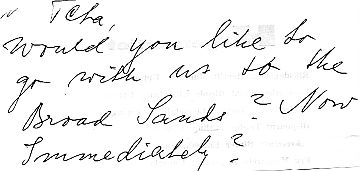 Tcha,
would you like to
go with us to the
Broad Sands? Now
Immediately?